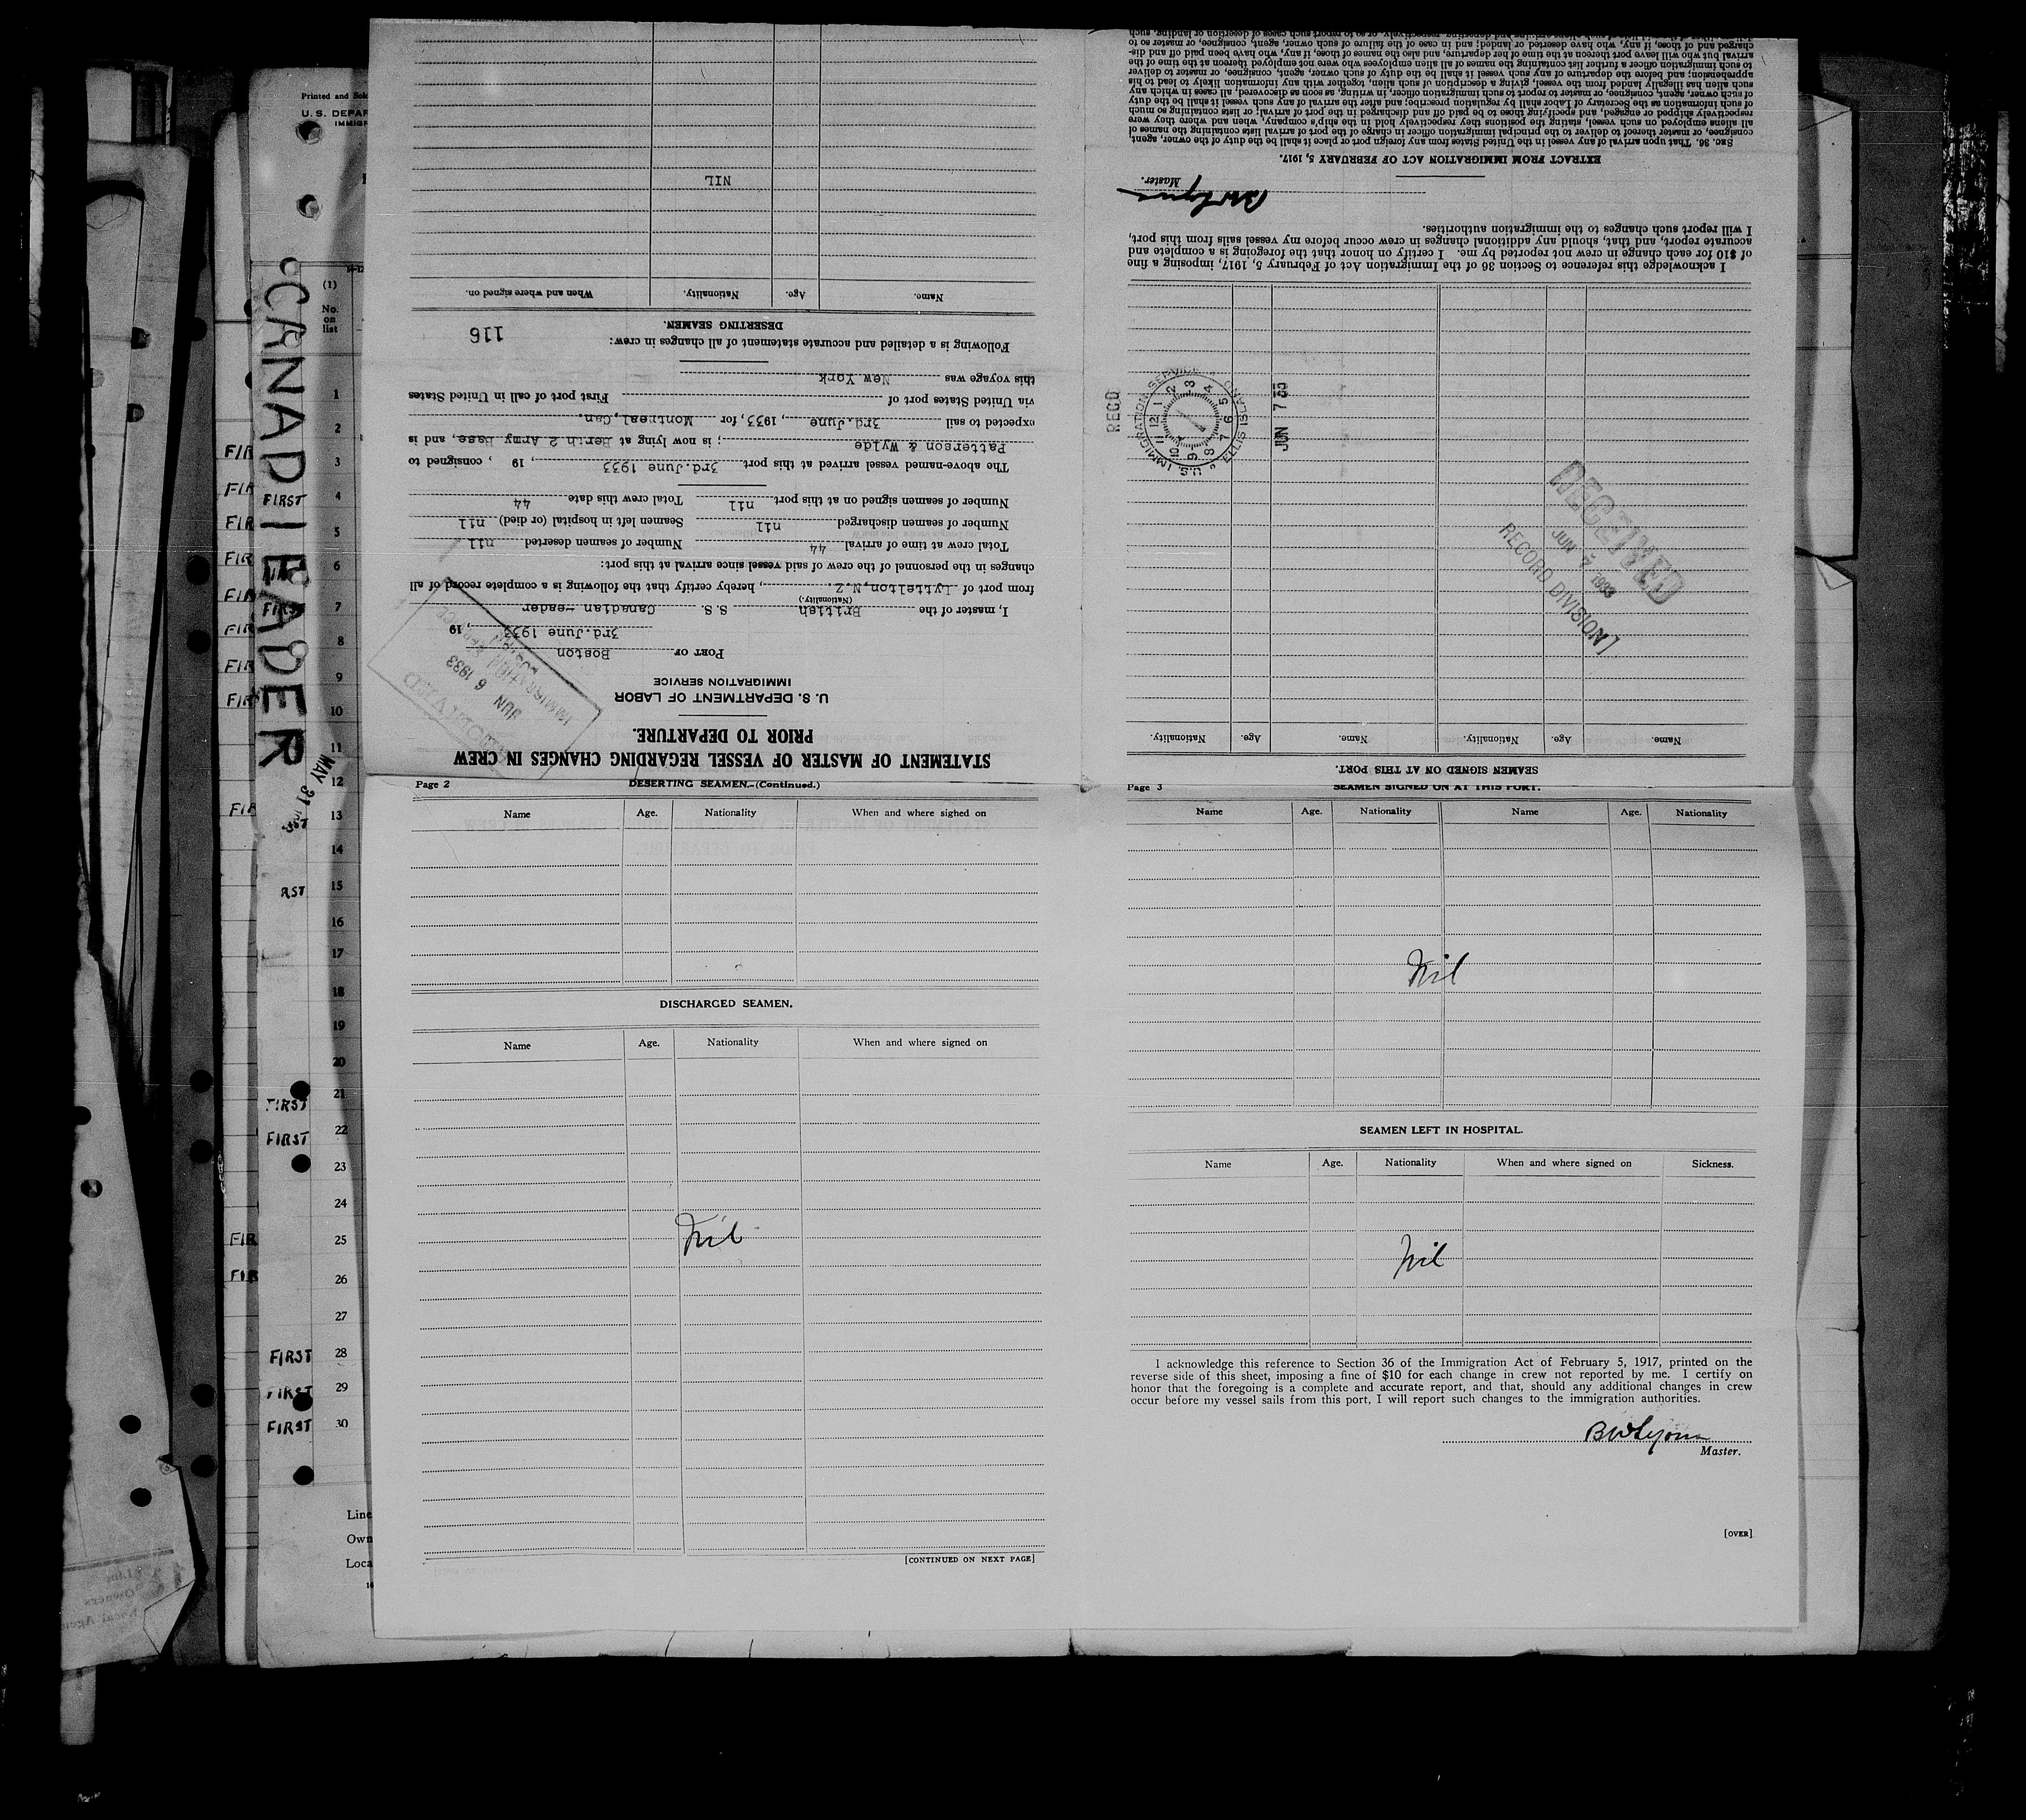 STATEMENT OF MASTER OF VESSEL REGARDING CHANGES IN CREW
PRIOR TO DEPARTURE.
U. S. DEPARTMENT OF LABOR
IMMIGRATION SERVICE
PORT OF Boston
3rd.June 1933, 19
I, master of the British S. S. Canadian
(Nationality.)
from port of Lyttelton,N.Z., hereby certify that the following is a complete record of all
changes in the personnel of the crew of said vessel since arrival at this port:
Total crew at time of arrival 44 Number of seamen deserted nil
Number of seamen discharged nil Seamen left in hospital (or died) nil
Number of seamen signed on at this port nil Total crew this date 44
The above-named vessel arrived at this port 3rd.June 1933, 19 , consigned to
Patterson & Wylde; is now lying at Berth 2 Army Base, and is
expected to sail 3rd.June, 1933, for Montreal,Can.
via United States port of First port of call in United States
this voyage was New York
Following is a detailed and accurate statement of all changes in crew:
116
DESERTING SEAMEN.
Name. Age. Nationality. When and where signed on.
NIL
SEAMEN SIGNED ON AT THIS PORT.
Name. Age. Nationality. Name. Age. Nationality.
RECEIVED
JUN 7 1933
RECORD DIVISION
REC'D
JUN 7 33
U.S. IMMIGRATION SERVICE ELLIS ISLAND
1 2 3 4 5 6 7 8 9 10 11 12
I acknowledge this reference to Section 36 of the Immigration Act of February 5, 1917, imposing a fine
of $10 for each change in crew not reported by me. I certify on honor that the foregoing is a complete and
accurate report, and that, should any additional changes in crew occur before my vessel sails from this port,
I will report such changes to the immigration authorities.
BW Lyons
Master.
EXTRACT FROM IMMIGRATION ACT OF FEBRUARY 5, 1917.
SEC. 36. That upon arrival of any vessel in the United States from any foreign port or place it shall be the duty of the owner, agent,
consignee, or master thereof to deliver to the principal immigration officer in charge of the port of arrival lists containing the names of
all aliens employed on such vessel, stating the positions they respectively hold in the ship's company, when and where they were
respectively shipped or engaged, and specifying those to be paid off and discharged in the port of arrival; or lists containing so much
of such information as the Secretary of Labor shall by regulation prescribe; and after the arrival of any such vessel it shall be the duty
of such owner, agent, consignee, or master to report to such immigration officer, in writing, as soon as discovered, all cases in which any
such alien has illegally landed from the vessel, giving a description of such alien, together with any information likely to lead to his
apprehension; and before the departure of any such vessel it shall be the duty of such owner, agent, consignee, or master to deliver
to such immigration officer a further list containing the names of all alien employees who were not employed thereon at the time of the
arrival but who will leave port thereon at the time of her departure, and also the names of those, if any, who have been paid off and dis-
charged and of those, if any, who have deserted or landed and in case of the failure of such owner, agent, consignee, or master so to
JUN 6 1933
Page 2 DESERTING SEAMEN.-(Continued.)
Name Age. Nationality When and where signed on
DISCHARGED SEAMEN.
Name Age. Nationality When and where signed on
Nil
[CONTINUED ON NEXT PAGE]
Page 3 SEAMEN SIGNED ON AT THIS PORT.
Name Age. Nationality Name Age. Nationality
Nil
SEAMEN LEFT IN HOSPITAL.
Name Age. Nationality When and where signed on Sickness.
Nil
I acknowledge this reference to Section 36 of the Immigration Act of February 5, 1917, printed on the
reverse side of this sheet, imposing a fine of $10 for each change in crew not reported by me. I certify on
honor that the foregoing is a complete and accurate report, and that, should any additional changes in crew
occur before my vessel sails from this port, I will report such changes to the immigration authorities.
BW Lyons
Master.
[OVER]
Printed and
U. S.
CANADI LEADER
MAY 31
(1)
No.
on
list
1
2
3
4
5
6
7
8
9
10
11
12
13
14
15
16
17
18
19
20
21
22
23
24
25
26
27
28
29
30
FIRST
FIRST
FIRST
FIRST
FIRST
FIRST
FIRST
Line
Own
Loca